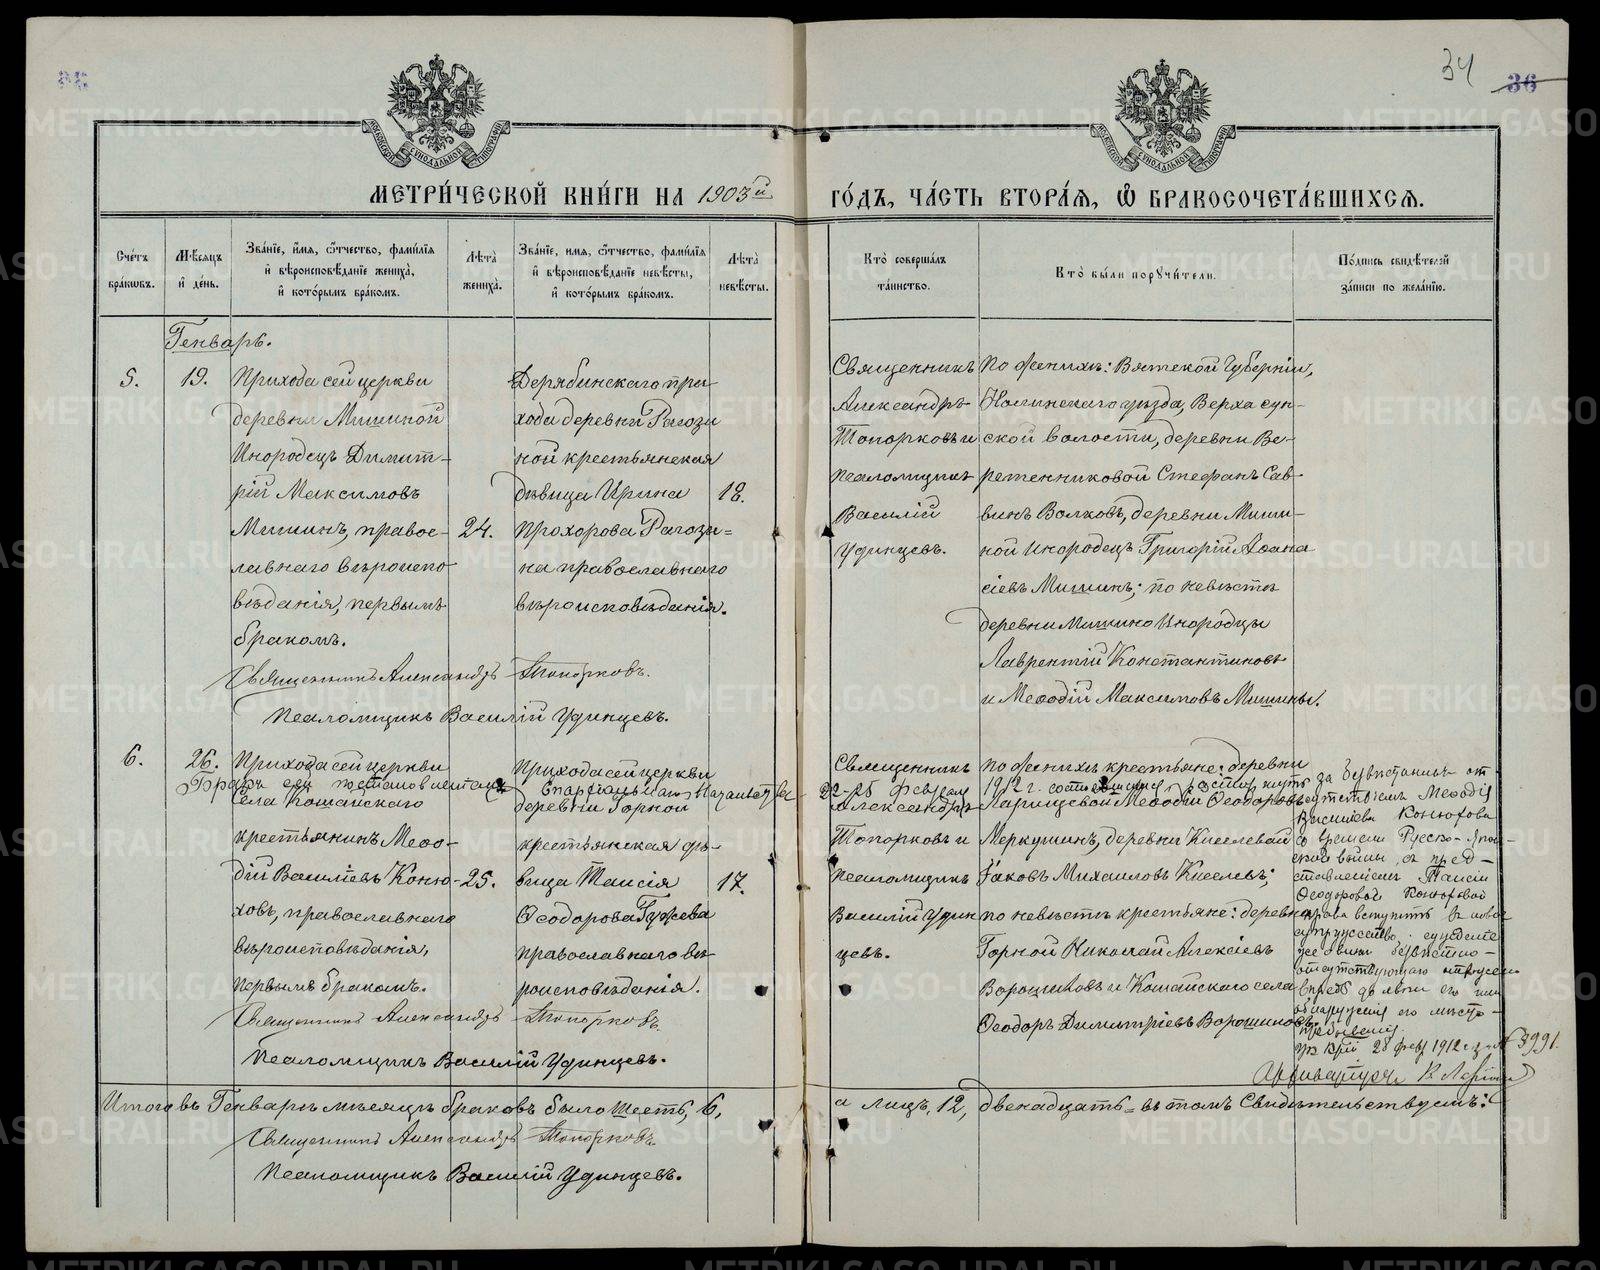 34
36
МЕТРИ́ЧЕСКОЙ КНИ́ГИ НА 1903й ГО́ДЪ, ЧА́СТЬ ВТОРА́Я, Ѽ БРАКОСОЧЕТА́ВШИХСЯ.
Сче́тъ бра́кѡвъ.
Мѣ́сяцъ и҆ де́нь.
Зва́нїе, и҆́мя, ѻ҆́тчество, фами́лїя и҆ вѣроисповѣ́данїе жениха̀, и҆ кото́рымъ бра́комъ.
Лѣта̀ жениха̀.
Зва́нїе, и҆́мя, ѻ҆́тчество, фами́лїя и҆ вѣроисповѣ́данїе невѣ́сты, и҆ кото́рымъ бра́комъ.
Лѣта̀ невѣ́сты.
Кто̀ соверша́лъ та́инство.
Кто̀ бы́ли порꙋчи́тели.
По́дпись свидѣ́телей за́писи по жела́нїю.
Генварь.
5.
19.
Прихода сей церкви
деревни Мишиной
Инородецъ Димит-
рій Максимовъ
Мишинъ, правос-
лавнаго вѣроиспо
вѣданія, первымъ
бракомъ.
24.
Дерябинскаго при
хода деревни Рагози
ной крестьянская
дѣвица Ирина
Прохорова Рагози=
на православнаго
вѣроисповѣданія.
18.
Священникъ
Александръ
Топорковъ и
псаломщикъ
Василій
Удинцевъ.
По женихѣ: Вятской Губерніи,
Нолинскаго уѣзда, Верхосун-
ской волости, деревни Ве-
ретенниковой Стефанъ Сав-
винъ Волковъ, деревни Миши-
ной инородецъ Григорій Аѳана
сіевъ Мишинъ; по невѣстѣ
деревни Мишино Инородцы
Лаврентій Константиновъ
и Меѳодій Максимовъ Мишины.
Священникъ Александръ Топорковъ.
Псаломщикъ Василій Удинцевъ.
6.
26.
Прихода сей церкви
села Кошайскаго
крестьянинъ Меѳо-
дій Василіевъ Коню-
ховъ, православнаго
вѣроисповѣданія,
первымъ бракомъ.
25.
Прихода сей церкви
деревни Горной
крестьянская дѣ-
вица Таисія
Ѳеодорова Гужева
православнаго вѣ-
роисповѣданія.
17.
Священникъ
Александръ
Топорковъ и
псаломщикъ
Василій Удин
цевъ.
По женихѣ крестьяне: деревни
Ларищевой Меѳодій Ѳеодоровъ
Меркушинъ, деревни Киселевой
Іаковъ Михаиловъ Киселевъ;
по невѣстѣ крестьяне: деревни
Горной Николай Алексіевъ
Ворошиловъ и Кошайскаго села
Ѳеодоръ Димитріевъ Ворошиловъ.
Бракъ сей постановленіемъ Епархіальнаго Начальства
22-28 февраля 1912 г. состоявшимся расторгнутъ за безвѣстнымъ от-
сутствіемъ Меѳодія
Василіева Конюхова
со времени Русско-Япон-
ской войны, съ пред-
ставленіемъ Таисіи
Ѳеодоровой Конюховой
права вступить въ новое
супружество
28 фев 1912 г. за № 3991.
Священникъ Александръ Топорковъ.
Псаломщикъ Василій Удинцевъ.
Итого въ Генварѣ мѣсяцѣ браковъ было шесть, 6, а лицъ, 12, двенадцать = въ томъ Свидѣтельствуемъ:
Священникъ Александръ Топорковъ.
Псаломщикъ Василій Удинцевъ.
METRIKI.GASO-URAL.RU